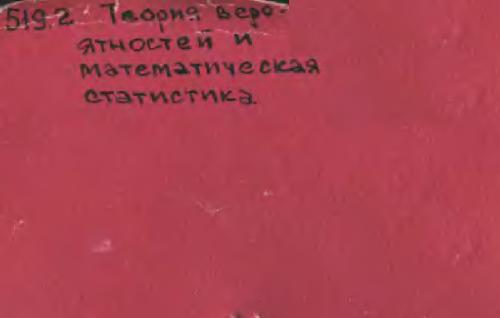 519.2 Теория веро-
ятностей и
математическая
статистика.